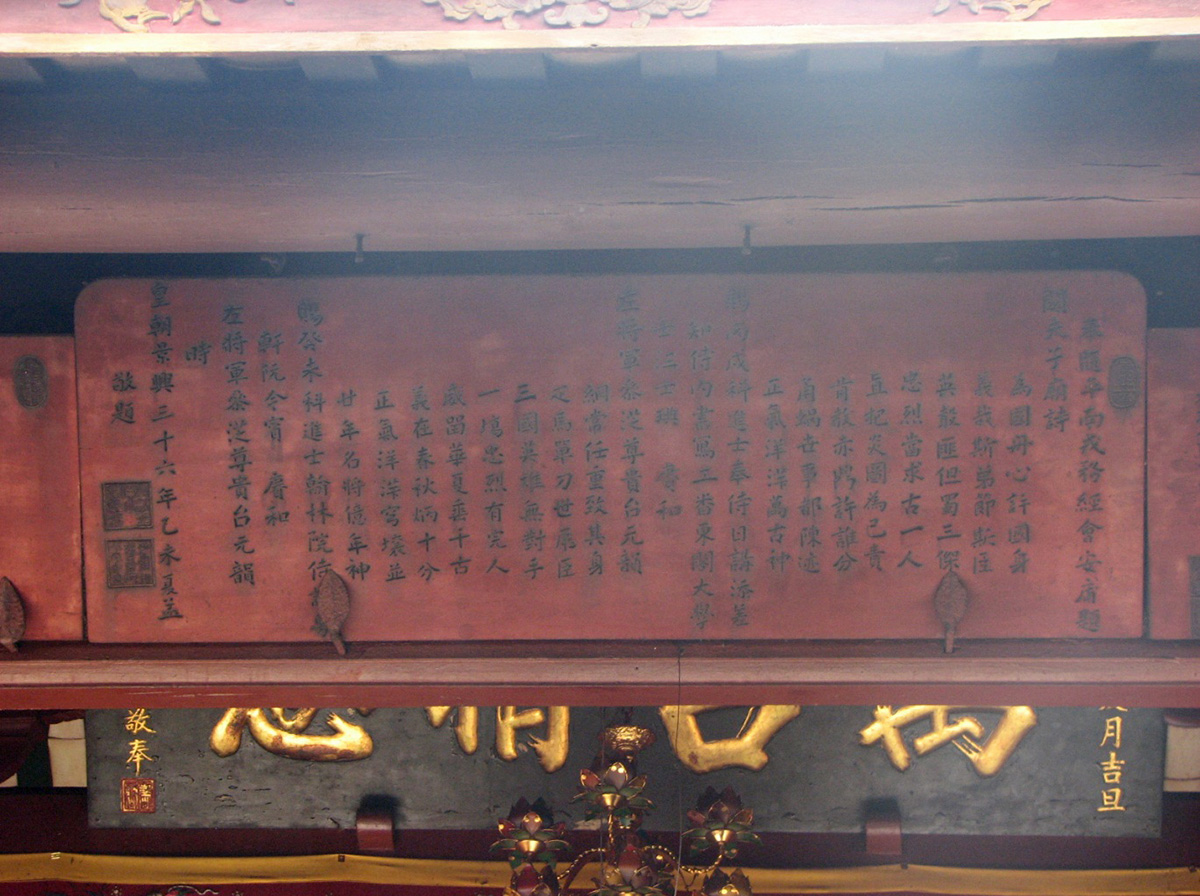 奉匯平南戎務經會安居題
關夫子廟詩
為國丹心許國身
義哉斯弟節斯臣
英毅匪但蜀三傑
忠烈當求古一人
直把炎圖為己責
肯教赤鼎許誰分
角蝸世事都陳迹
正氣洋洋萬古神
賜丙戌科進士奉侍日講添差
知侍內書寫工番東閣大學
士
左將軍參從尊貴台元韻
綱常任重致其身
疋馬單刀世庸臣
三國英雄無對手
一墳忠烈有完人
威留華夏垂千古
義在春秋炳十分
正氣洋洋穹壤並
廿年名將億年神
賜癸未科進士翰林院侍
軒阮令賓賡和
左將軍參從尊貴台元韻
時
皇朝景興三十六年乙未夏孟
敬題
月吉旦
萬古精忠
敬奉